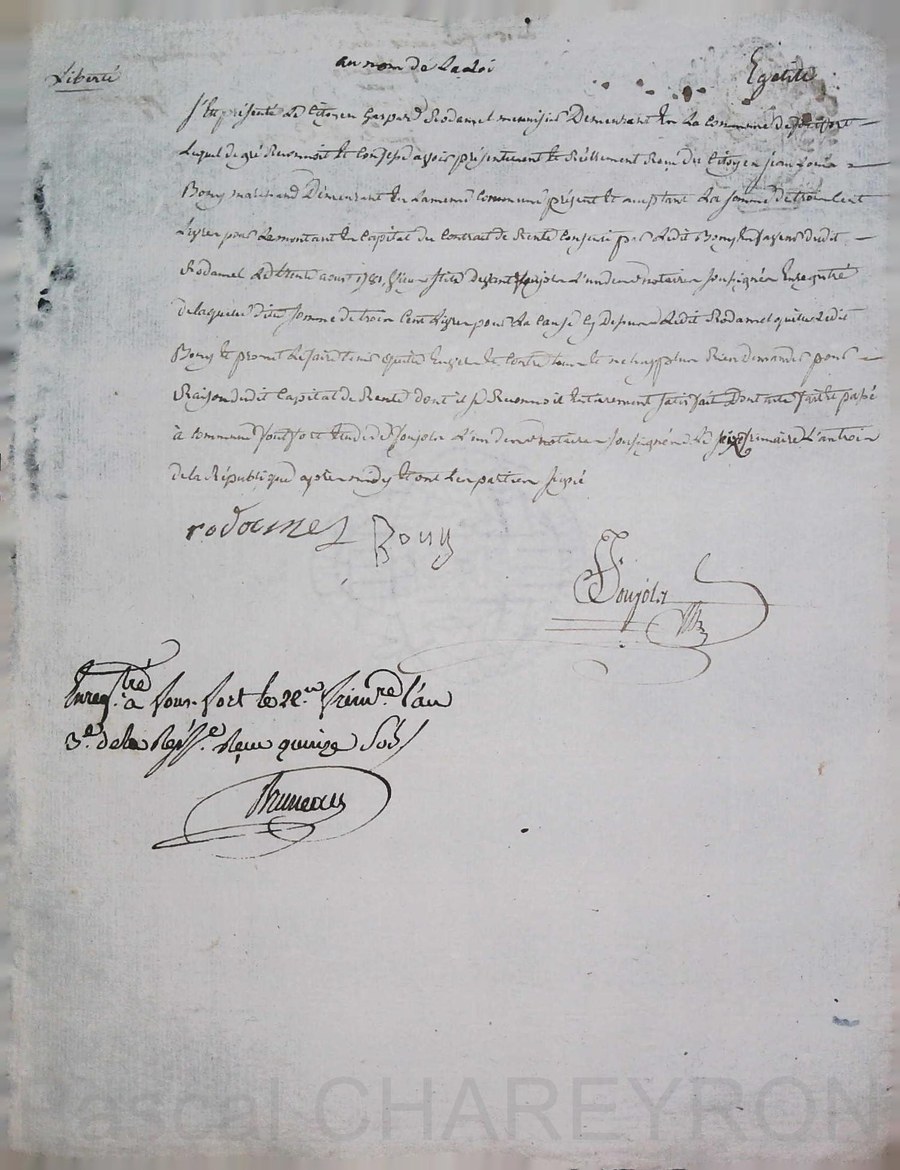 Liberté au nom de La Loi Egalité
S'Est présenté Le Citoyen Gaspard Rodamel menuisier Demeurant En La Commune de fonfort
Lequel de gré Reconnoit Et Confesse avoir présentement Et Réellement Reçu du Citoyen jean Louis
Bouy marchand Demeurant En La meme Commune présent Et acceptant La somme de trois Cent
Livres pour Le montant En Capital du Contrat de Rente Consenti par Ledit Bouy En faveur dudit
Rodamel Le trente aout 1781, stile Devant Soujola L'un des notaires soussignés Enregistré
de laquelle ditte somme de trois Cent Livres pour La Cause Cy Dessus Ledit Rodamel quitte Ledit
Bouy Et promet Le faire tenir quitte Envers Et Contre tous Et ne luy plus Rien demander pour
Raison dudit Capital de Rente dont il se Reconnoit Entierement satisfait Dont acte fait Et passé
à Commune fonfort Etude de Soujola L'un des notaires soussignés Le seize frimaire L'an trois
de la République après midy Et ont Les parties signé
rodamel Bouy
Soujola
Enregtré à fons-fort le 22. frimre l'an
3.e de la Repque Reçu quinze Sols
Bruneau
Pascal CHAREYRON